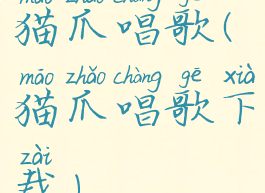 māo zhǎo chàng gē
猫爪唱歌(
māo zhǎo chàng gē xià
猫爪唱歌下
zài
载)